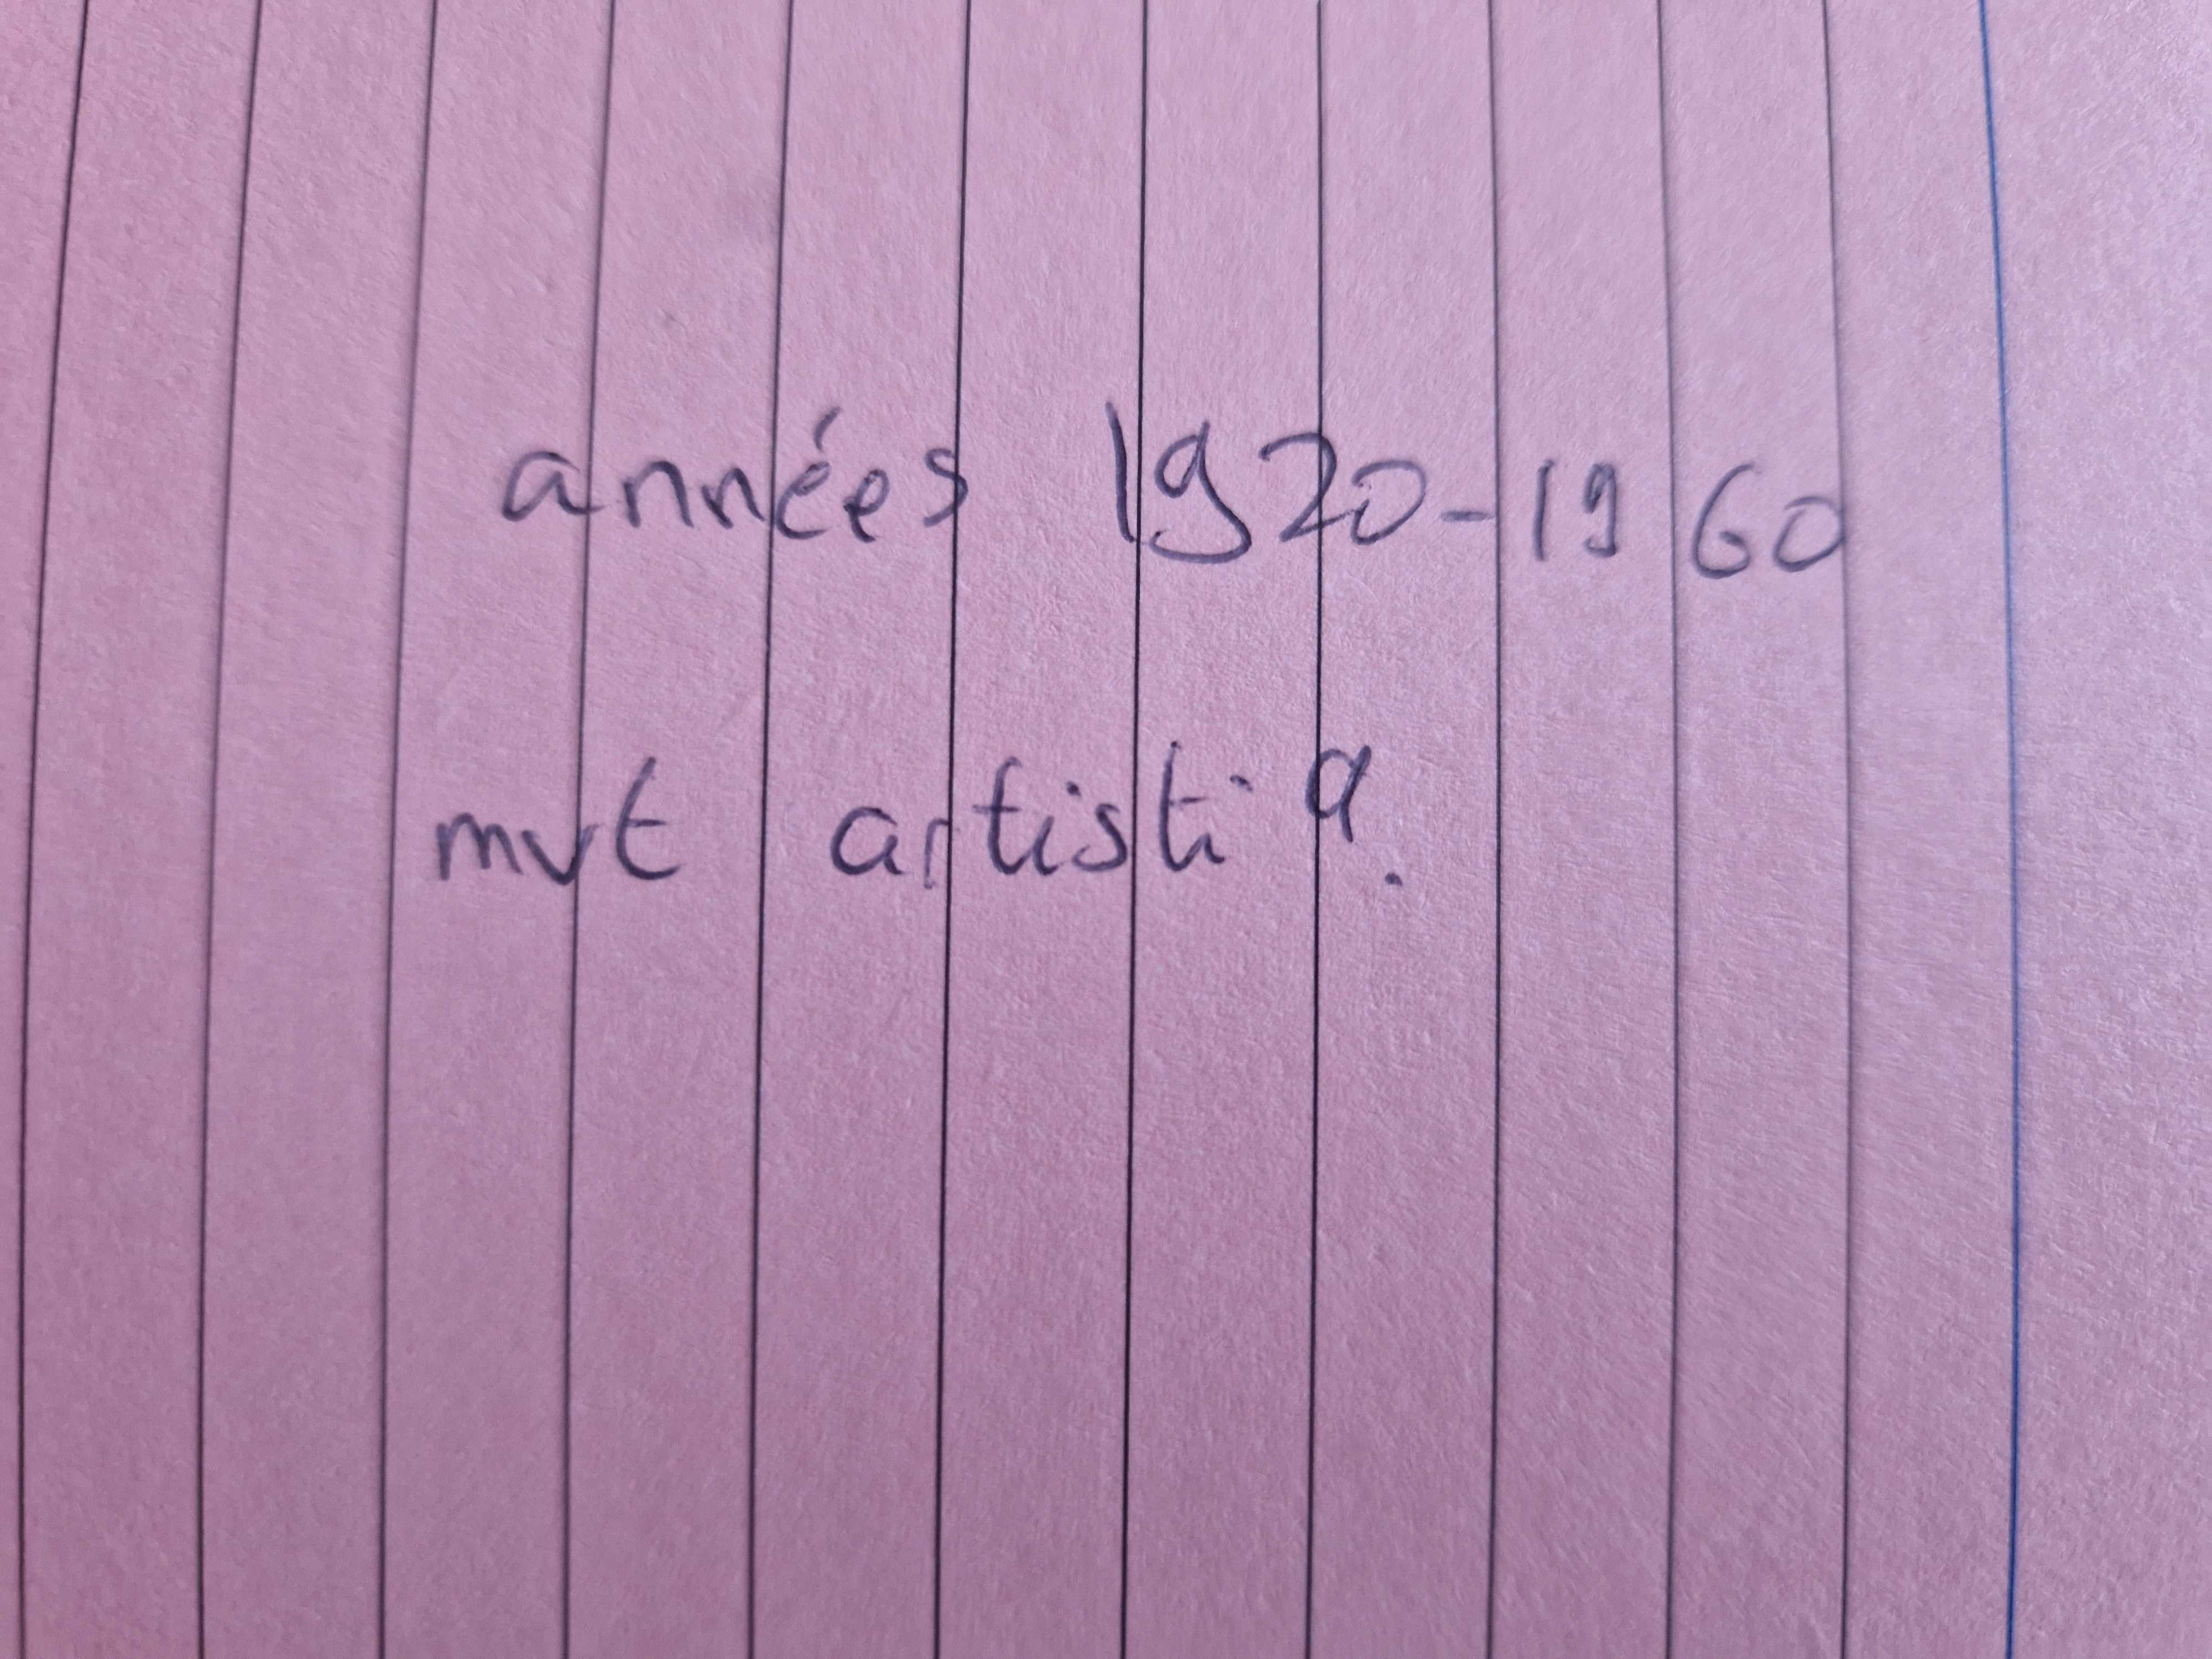 années 1920-1960
mvt artisti q.